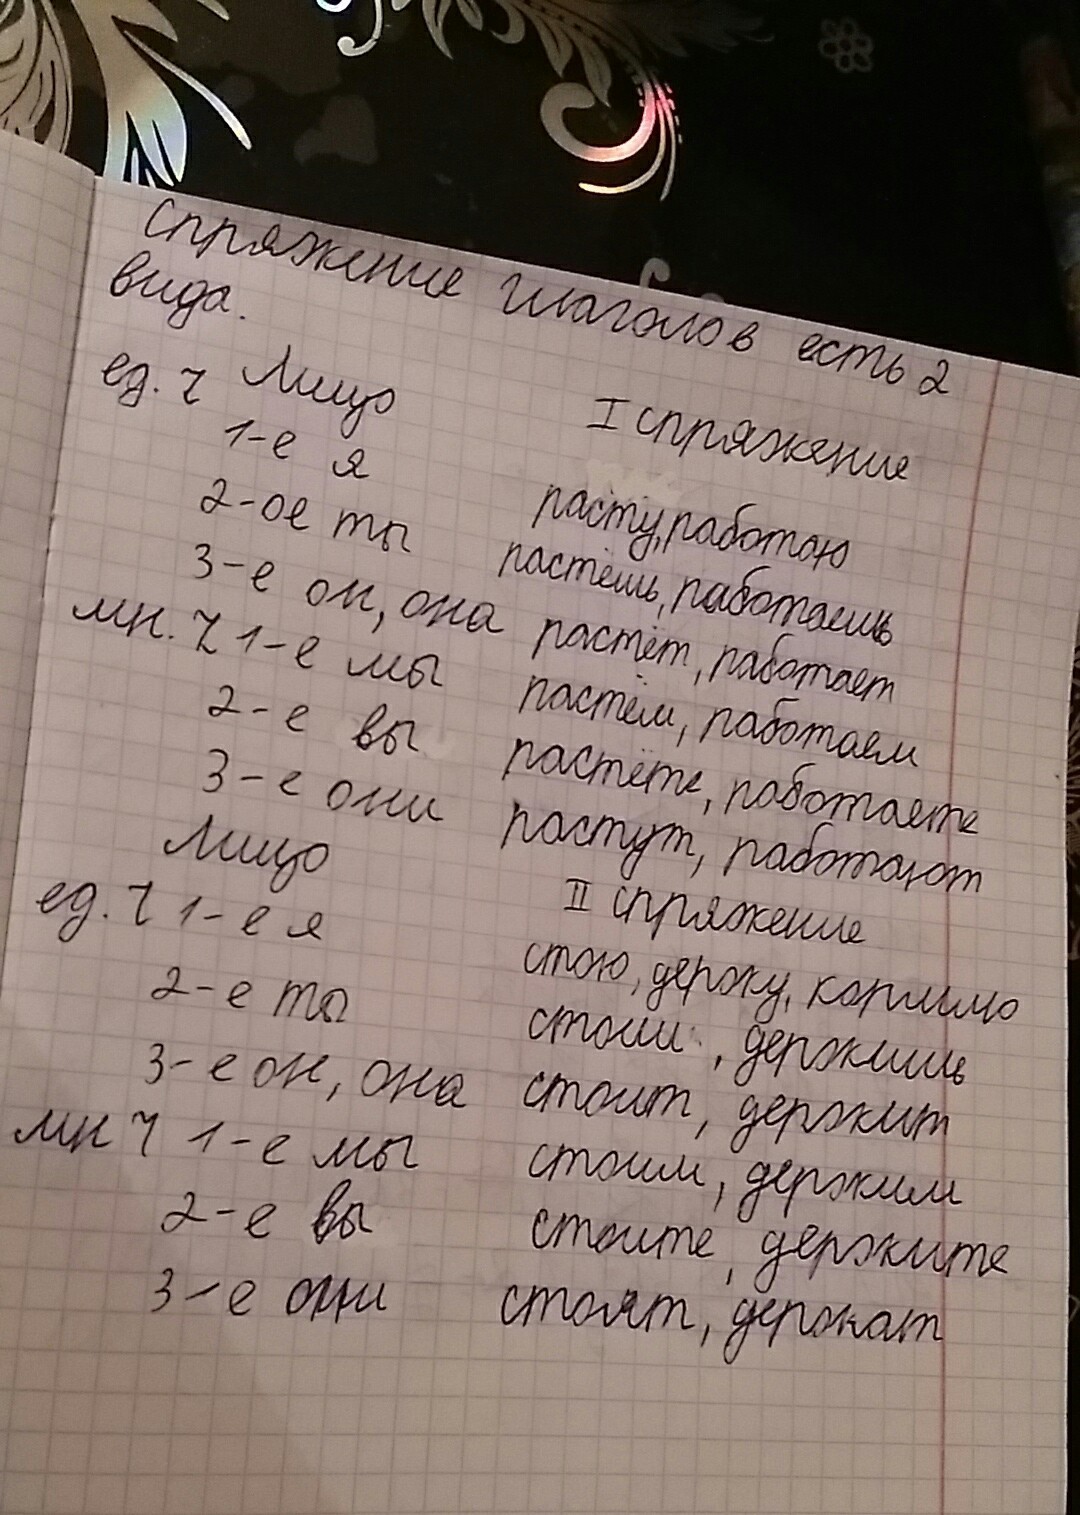 Спряжение глаголов есть 2
вида.
ед. ч Лицо I спряжение
1-е я расту, работаю
2-ое ты растёшь, работаешь
3-е он, она растёт, работает
мн. ч 1-е мы растём, работаем
2-е вы растёте, работаете
3-е они растут, работают
Лицо II спряжение
ед. ч 1-е я стою, держу,
2-е ты стоиш, держишь
3-е он, она стоит, держит
мн ч 1-е мы стоим, держим
2-е вы стоите, держите
3-е они стоят, держат